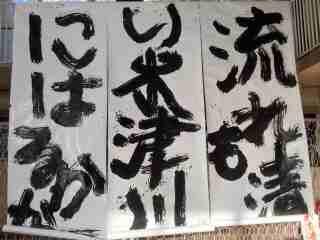 流れも清
い米津川
にはるか